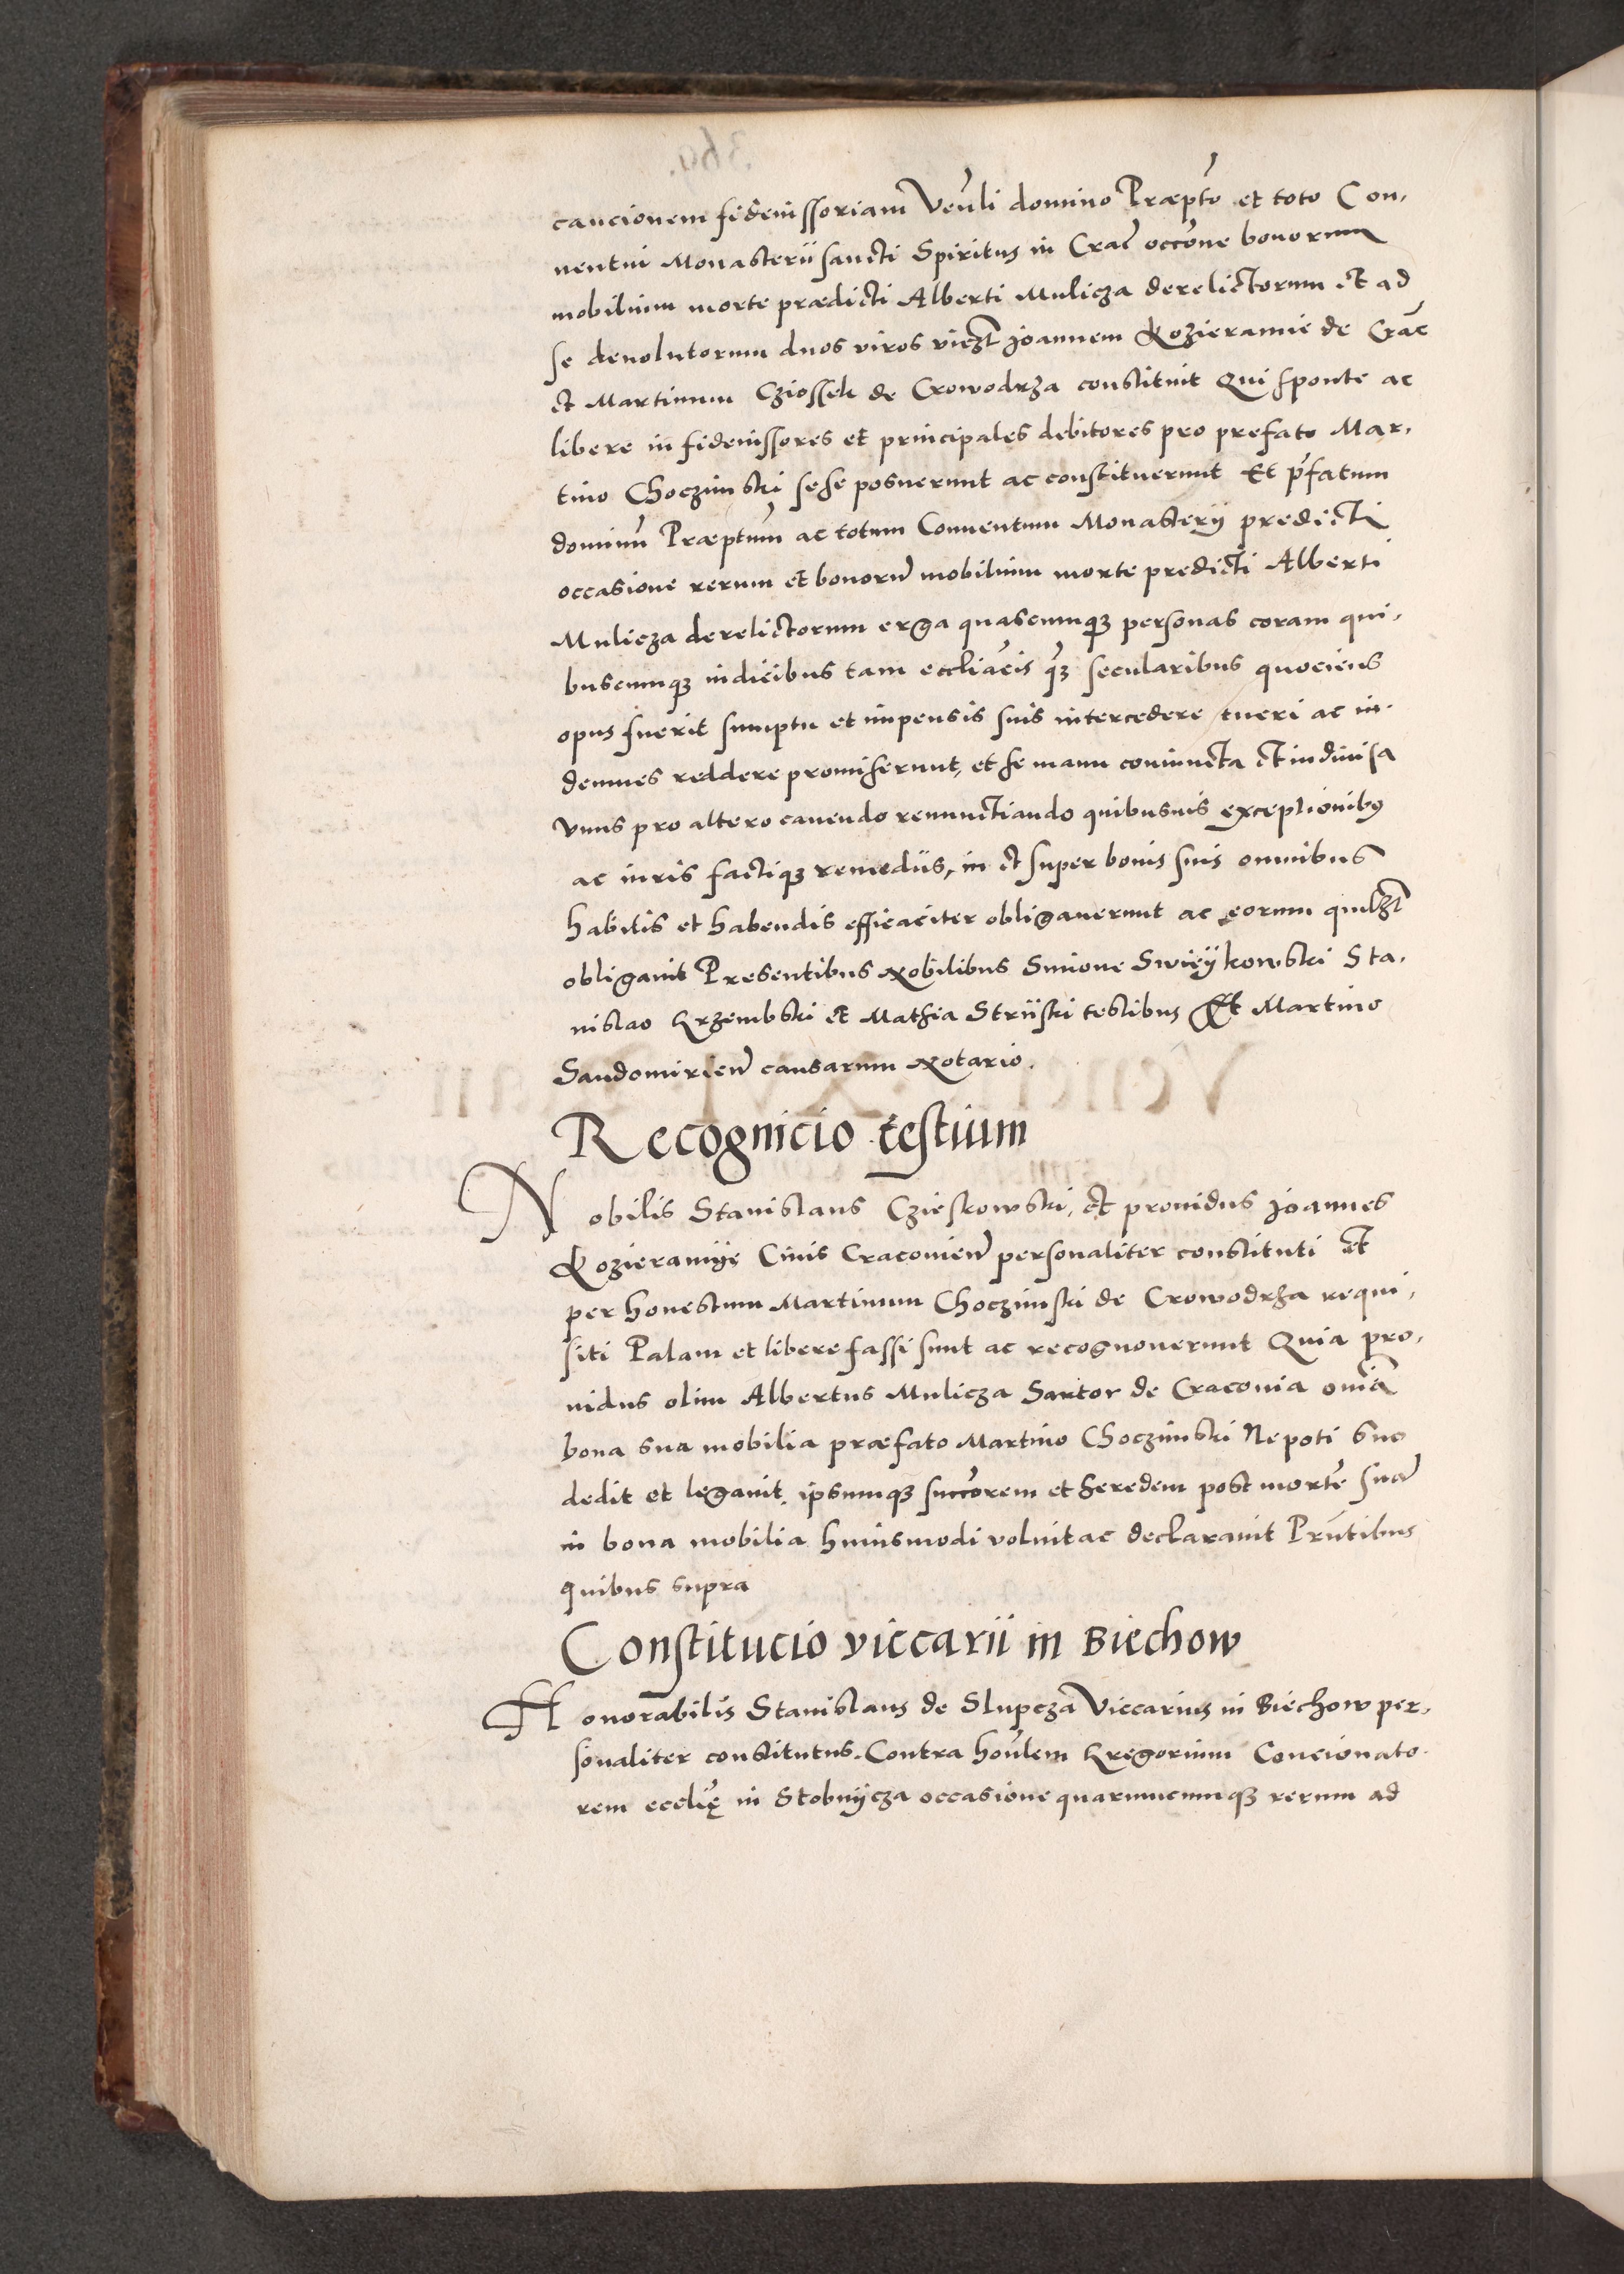 caucionem fideiussoriam Venͬli domino Præpto et toto Con,
uentui Monasterii sancti Spiritus in Crac occone bonorum
mobilium morte prædicti Alberti Mulicza derelictorum et ad
se deuolutorum duos viros viczt Joannem Kozieramie de Crac
et Martinum Cziossek de Crowodrza constituit Qui sponte ac
libere in fideiussores et principales debitores pro prefato Mar,
tino Choczimski sese posuerunt ac constituerunt Et pfatum
dominu Præptum ac totum Conuentum Monasterij predicti
occasione rerum et bonoru mobilium morte predicti Alberti
Mulicza derelictorum erga quascumqȝ personas coram qui,
buscumqȝ iudicibus tam eccliacis qȝ secularibus quociens
opus fuerit sumptu et impensis suis intercedere tueri ac in,
demnes reddere promiserunt, et se manu coniuncta et indiuisa
vnus pro altero cauendo renunctiando quibusuis exceptionibus
ac iuris factiqȝ remediis, in et super bonis suis omnibus
habitis et habendis efficaciter obligauerunt ac eorum quilzt
obligauit Presentibus Nobilibus Simone Swięykowski Sta,
nislao Krzembski et Mathia Striiski testibus Et Martino
Sandomirien causarum Notario.
Recognicio testium
Nobilis Stanislaus Czieskowski, et prouidus Joannes
Kozieramye Ciuis Cracouien personaliter constituti et
per honestum Martinum Choczimski de Crowodrza requi,
siti Palam et libere fassi sunt ac recognouerunt Quia pro,
uidus olim Albertus Mulicza Sartor de Cracouia omia
bona sua mobilia præfato Martino Choczimski Nepoti suo
dedit et legauit, ipsumqȝ succorem et heredem post morte sua
in bona mobilia huiusmodi voluit ac declarauit Pruntibus
quibus supra
Constitucio viccarii in Biechow
Honorabilis Stanislaus de Slupcza Viccarius in Biechow per,
sonaliter constitutus. Contra honlem Gregorium Concionato,
rem ecclię in Stobnijcza occasione quarumcumqȝ rerum ad